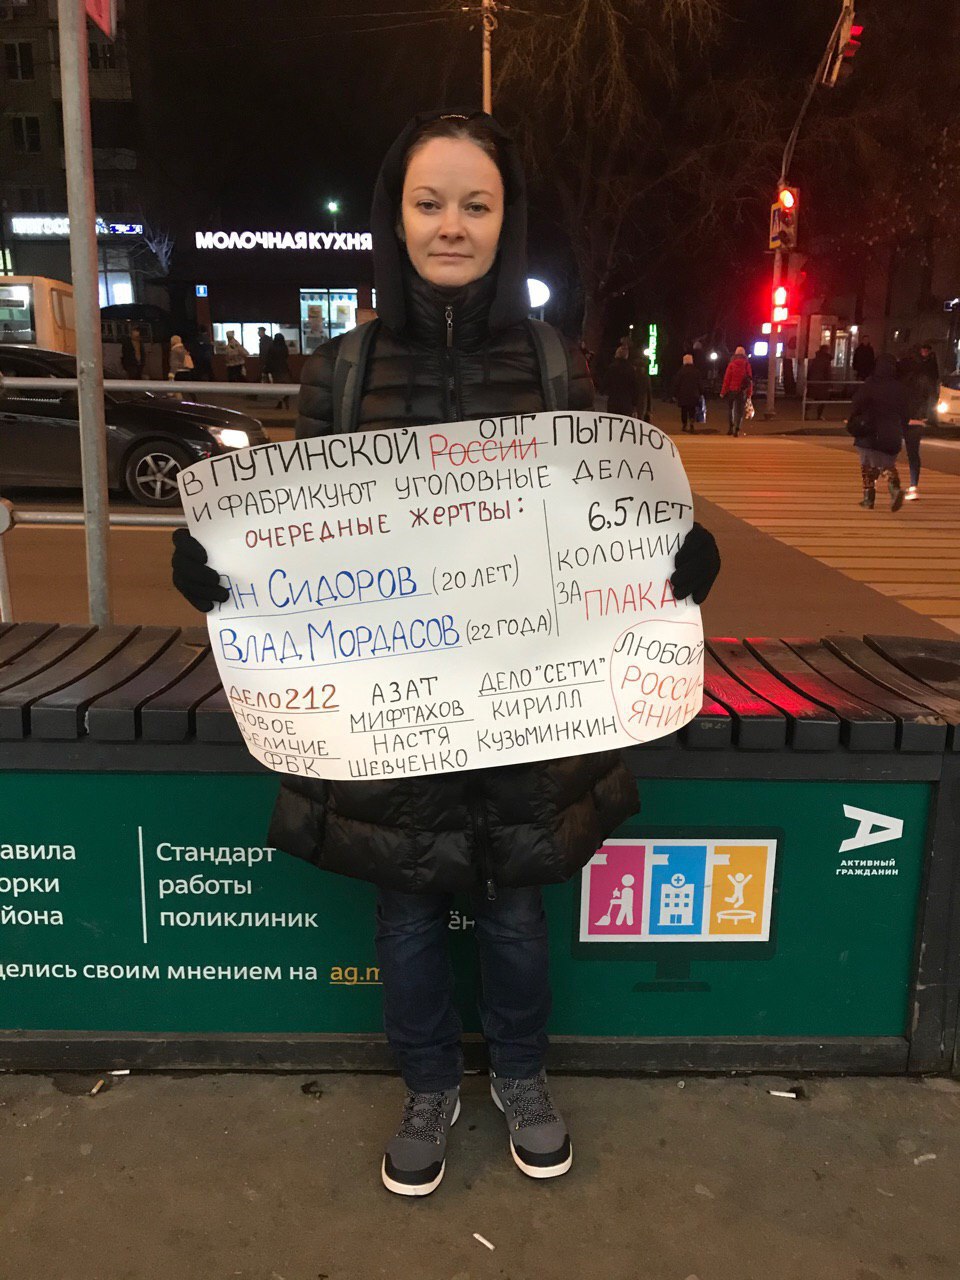 МОЛОЧНАЯ КУХНЯ
ОПГ
В ПУТИНСКОЙ РОССИИ ПЫТАЮТ
И ФАБРИКУЮТ УГОЛОВНЫЕ ДЕЛА
ОЧЕРЕДНЫЕ ЖЕРТВЫ:
ЯН СИДОРОВ (20 ЛЕТ)
ВЛАД МОРДАСОВ (22 ГОДА)
6,5 ЛЕТ
КОЛОНИИ
ЗА ПЛАКАТ
ДЕЛО 212
НОВОЕ
ВЕЛИЧИЕ
ФБК
АЗАТ
МИФТАХОВ
НАСТЯ
ШЕВЧЕНКО
ДЕЛО "СЕТИ"
КИРИЛЛ
КУЗЬМИНКИН
ЛЮБОЙ
РОССИ-
ЯНИН
авила
орки
йона
Стандарт
работы
поликлиник
ён
делись своим мнением на ag.m
АКТИВНЫЙ
ГРАЖДАНИН